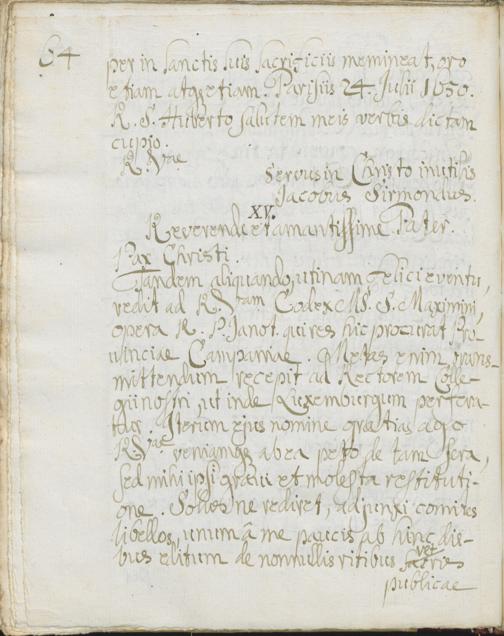 64
per in sanctis suis sacrificiis memineat, oro
etiam atq etiam. Parisiis 24. Julii 1650.
R. S. Huberto salutem meis verbis dictam
cupio.
R. Vae
Servus in Christo inutilis
Jacobus Sirmondus.
XV.
Reverende et amantissime Pater.
Pax Christi.
Tandem aliquando, utinam felici eventu,
redit ad R. Vtam Codex MS. S. Maximini,
opera R. P. Janot. qui res hic procurat Pro-
vinciae Campaniae. Metas enim trans-
mittendum recepit ad Rectorem Colle-
gii nostri, ut inde Luxemburgum perfera-
tur. Iterum ejus nomine gratias ago
R. Vae veniamq ab ea peto de tam sera,
sed mihi ipsi gravi et molesta restituti-
one. Solus ne rediret, adjunxi comites
libellos, unum à me paucis ab hinc die-
bus editum de nonnullis ritibus vet
publicae